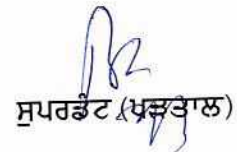 ਸੁਪਰਡੰਟ (ਪੜਤਾਲ)